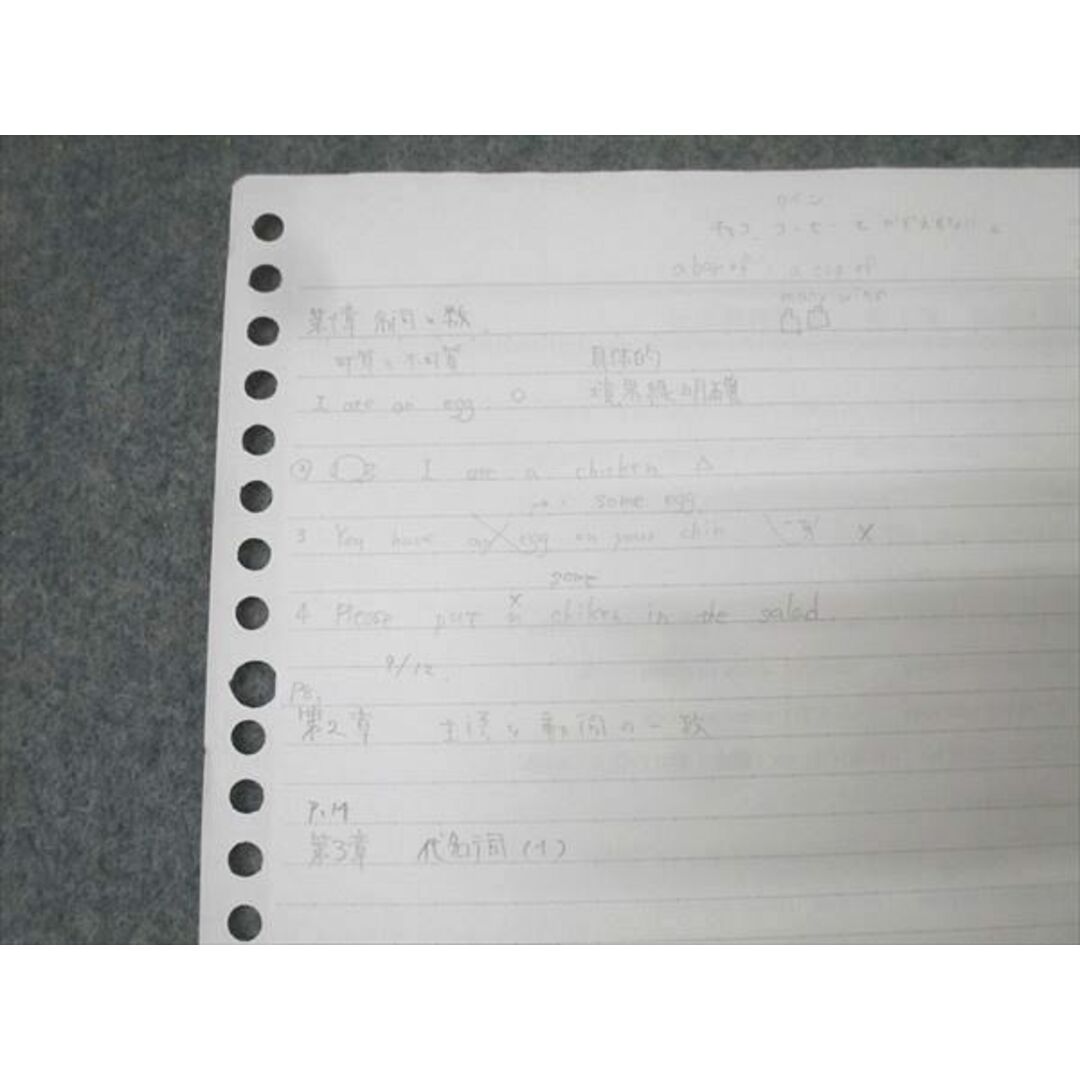 ワイン
a bag of a cup of
many wine
第1章 名詞と数
可算と不可算 具体的
I ate an egg. ○ 境界線明確
② I ate a chicken △
some egg.
3 You have an egg on your chin ×
some
4 Please put a chiken in the salad.
9/12.
P8.
第2章 主語と動詞の一致
P.14
第3章 代名詞(1)